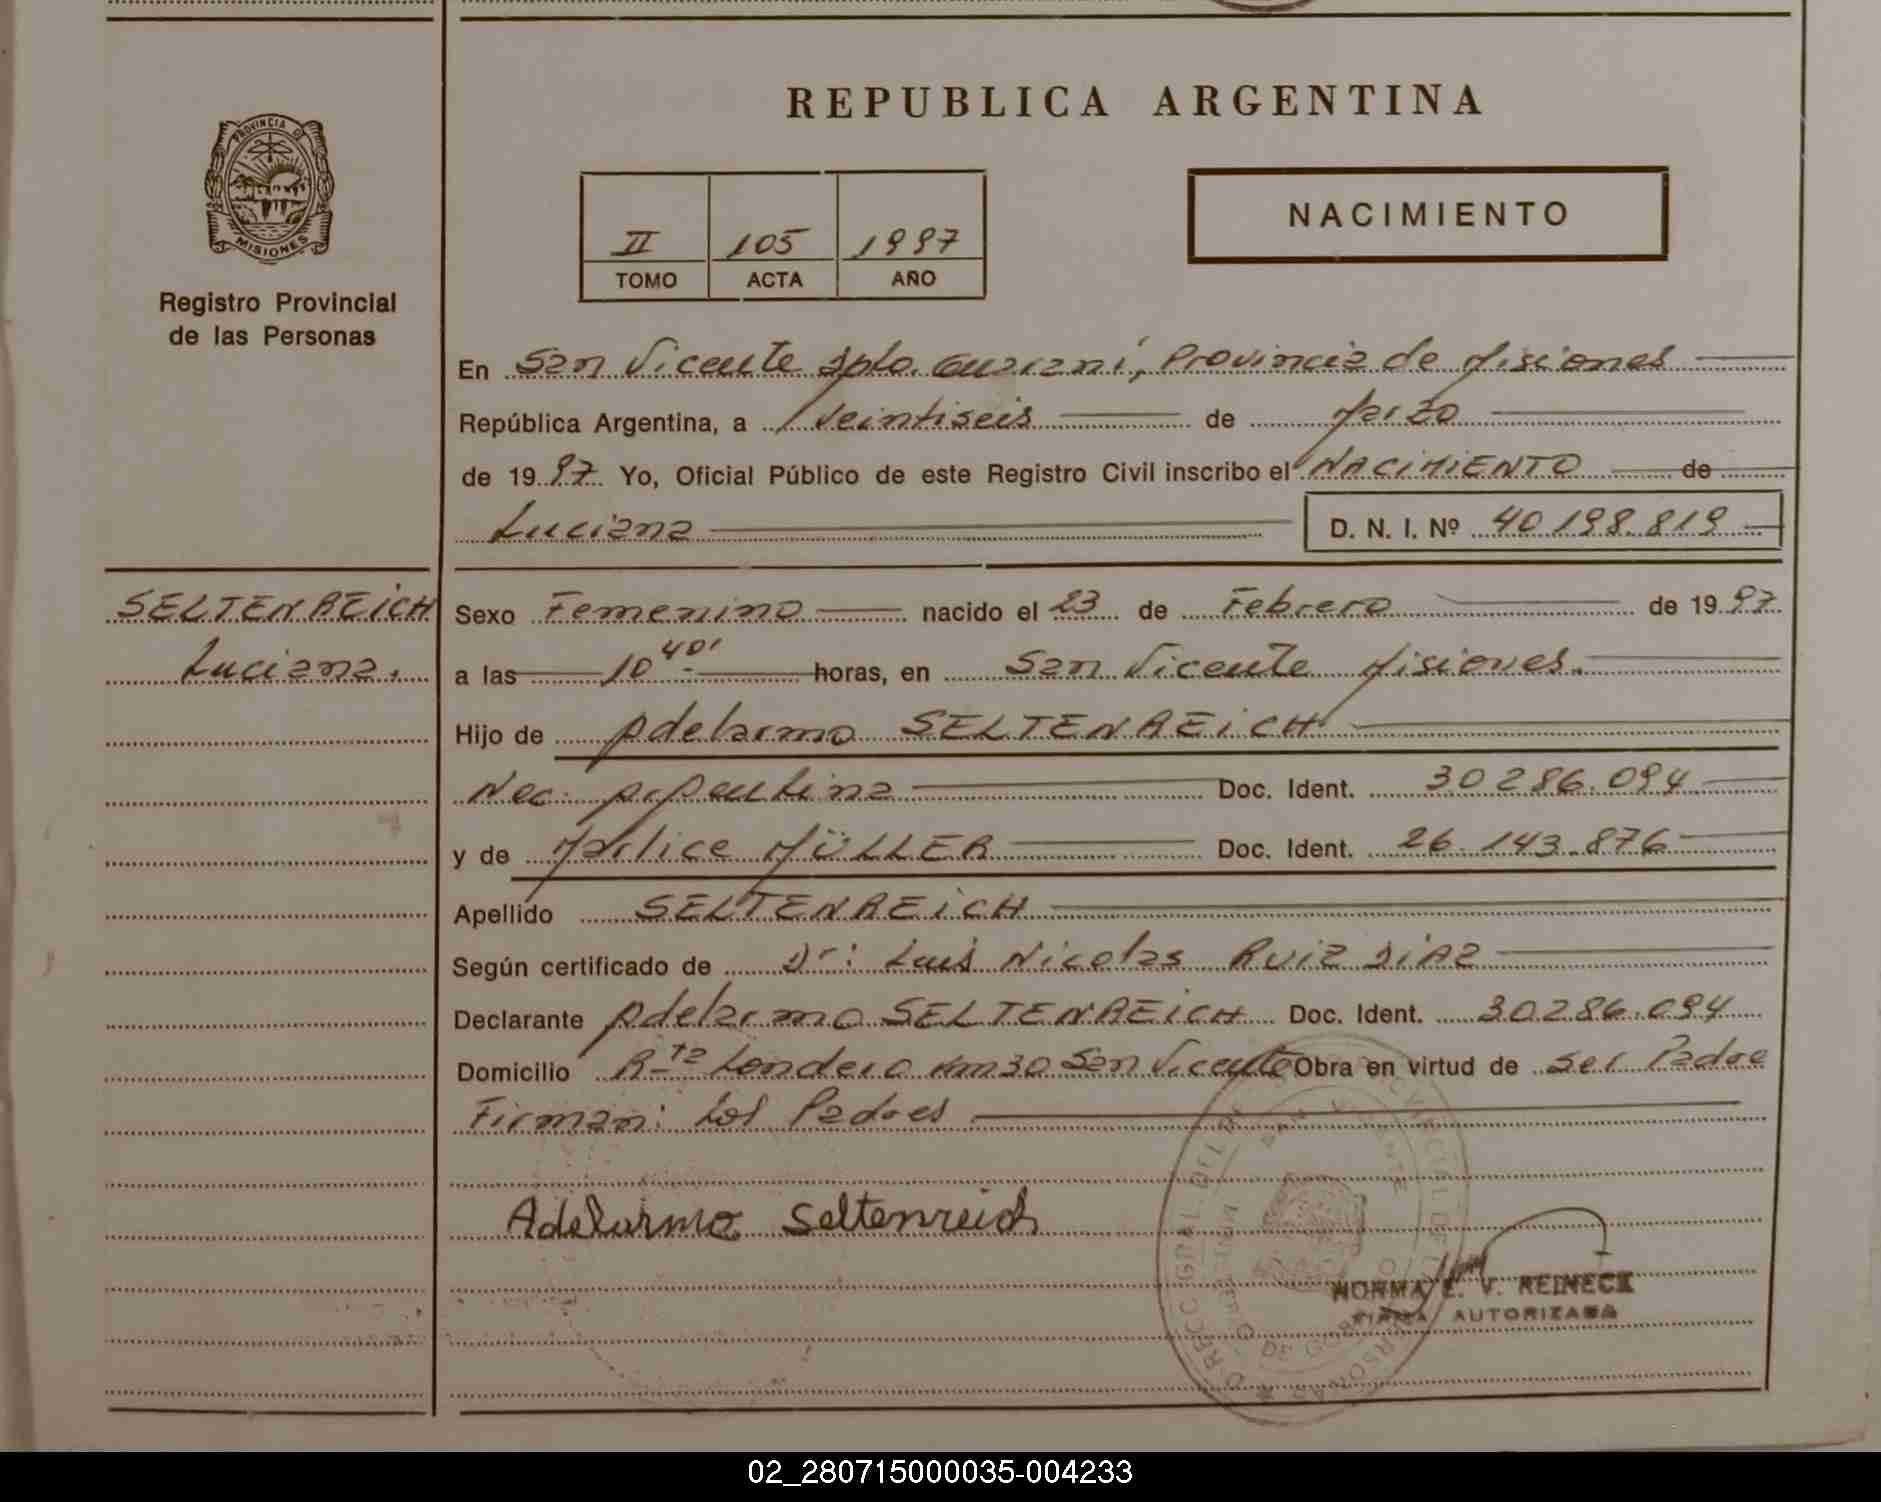 REPUBLICA ARGENTINA
PROVINCIA D
MISIONES
Registro Provincial
de las Personas
II 105 1997
TOMO ACTA AÑO
NACIMIENTO
En San Vicente Dpto. Guarani, Provincia de Misiones
República Argentina, a Veintiseis de Marzo
de 1997 Yo, Oficial Público de este Registro Civil inscribo el NACIMIENTO de
Luciana D. N. I. Nº 40198.819
SELTENREiCH
Luciana.
Sexo Femenino nacido el 23 de Febrero de 1997
a las 10 40' horas, en San Vicente Misiones.
Hijo de Adelarmo SELTENREiCH
Nac. Argentina Doc. Ident. 30286.094
y de Marlice MÜLLER Doc. Ident. 26.143.876
Apellido SELTENREiCH
Según certificado de Dr: Luis Nicolas RUiZ DiAZ
Declarante Adelarmo SELTENREiCH Doc. Ident. 30286.094
Domicilio Rta Londero Km30 San Vicente Obra en virtud de ser Padre
Firman: Los Padres
Adelarmo Seltenreich
NORMA E. V. REINECK
FIRMA AUTORIZADA
02_280715000035-004233